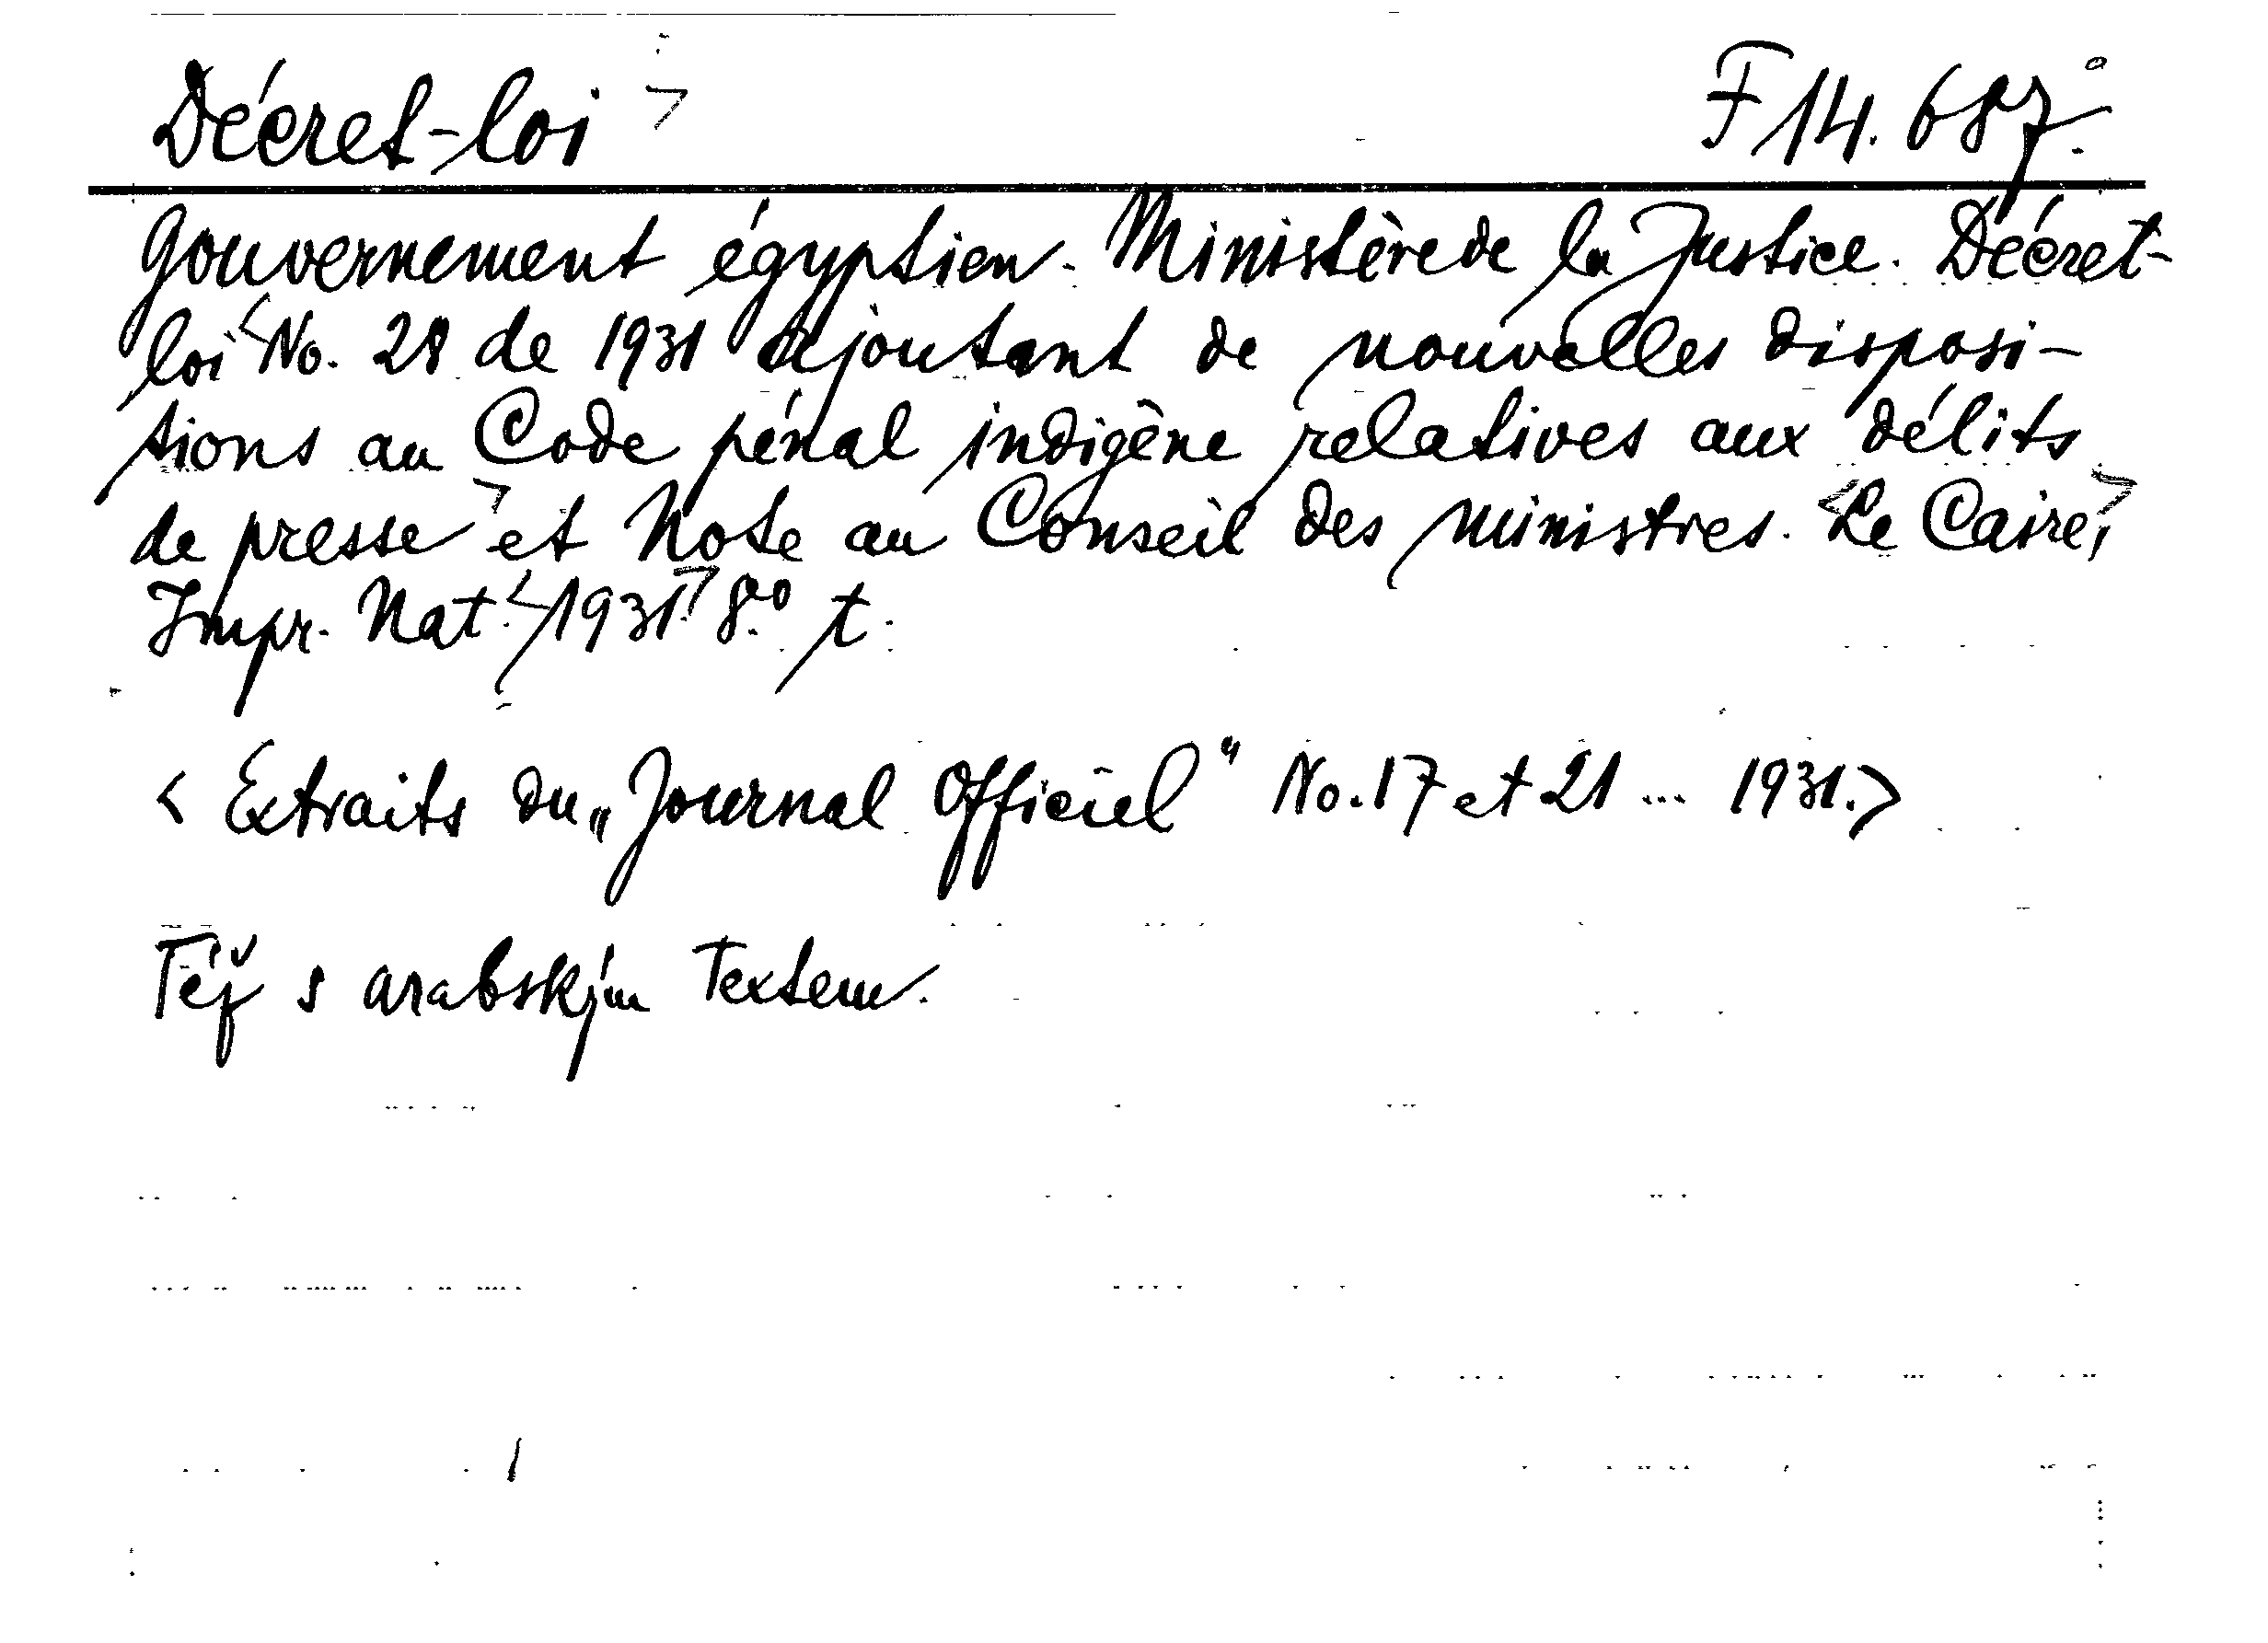 Décret-loi > F 14.687.
Gouvernement égyptien. Ministère de la Justice. Décret-
loi <No. 28 de 1931 ajoutant de nouvelles disposi-
tions au Code pénal indigène relatives aux délits
de presse> et Note au Conseil des ministres. <Le Caire,>
Impr. Nat. <1931.> 8.° t.
< Extraits du „Journal Officiel" No. 17 et 21 ... 1931.>
Též s arabským textem.